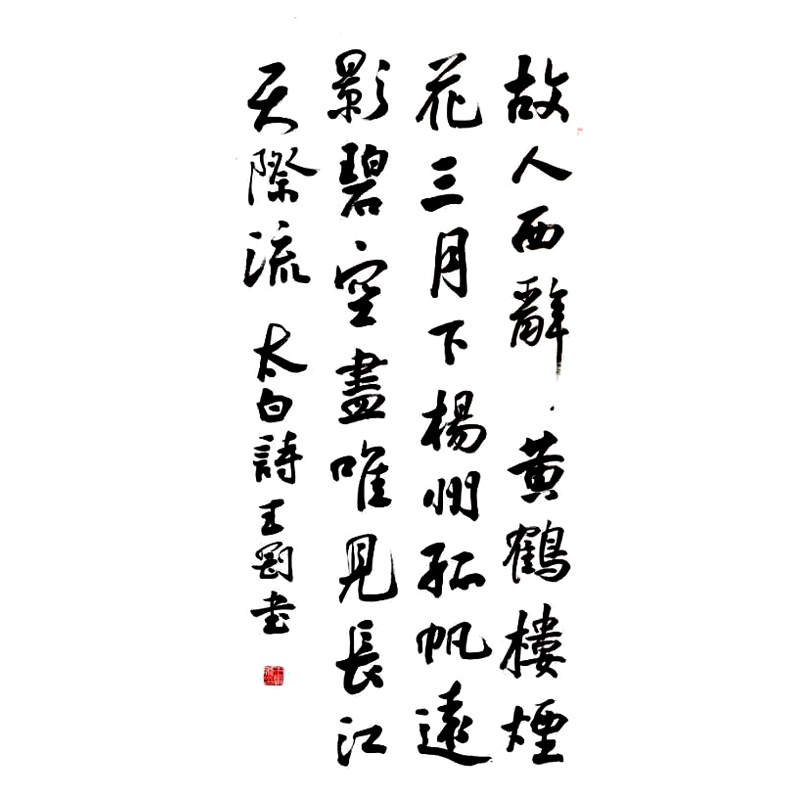 故人西辭黃鶴樓煙
花三月下楊州孤帆遠
影碧空盡唯見長江
天際流 太白詩王劉書